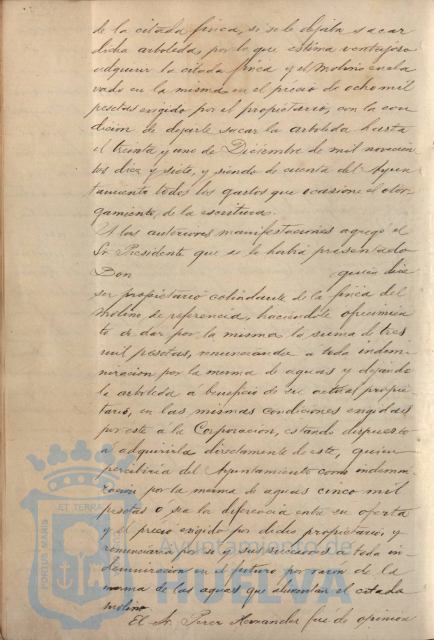 de la citada finca, si se le dejaba sacar
dicha arboleda, por lo que estima ventajoso
adquirir la citada finca y el molino encla-
vado en la misma en el precio de ocho mil
pesetas exigido por el propietario, con la con-
dicion de dejarle sacar la arboleda hasta
el treinta y uno de Diciembre de mil novecien-
tos diez y siete, y siendo de cuenta del Ayun-
tamiento todos los gastos que ocasione el otor-
gamiento de la escritura.
A las anteriores manifestaciones agregó el
Sr. Presidente que se le había presentado
Don quien dice
ser propietario colindante de la finca del
molino de referencia, haciendole ofrecimien-
to de dar por la misma la suma de tres
mil pesetas, renunciandose a toda indem-
nizacion por la merma de aguas y dejando
la arboleda á beneficio de su actual propie-
tario, en las mismas condiciones exigidas
por este a la Corporacion, estando dispuesto
á adquirirla directamente de este, quien
percibiria del Ayuntamiento como indemni-
zacion por la merma de aguas cinco mil
pesetas o sea la diferencia entre su oferta
y el precio exigido por dicho propietario, y
renunciaria por si y sus sucesores a toda in-
demnizacion en el futuro por razon de la
merma de las aguas que alimentan el citado
molino.
El Sr. Perez Hernandez fué de opinion
PORTUS MARIS ET TERRAE
Ayuntamiento de
HUELVA